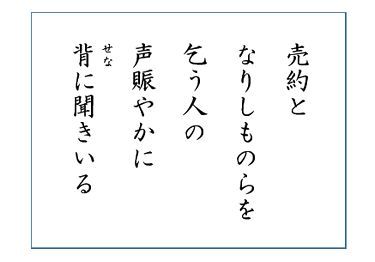 売約と
なりしものらを
乞う人の
声賑やかに
背に聞きいる
せな